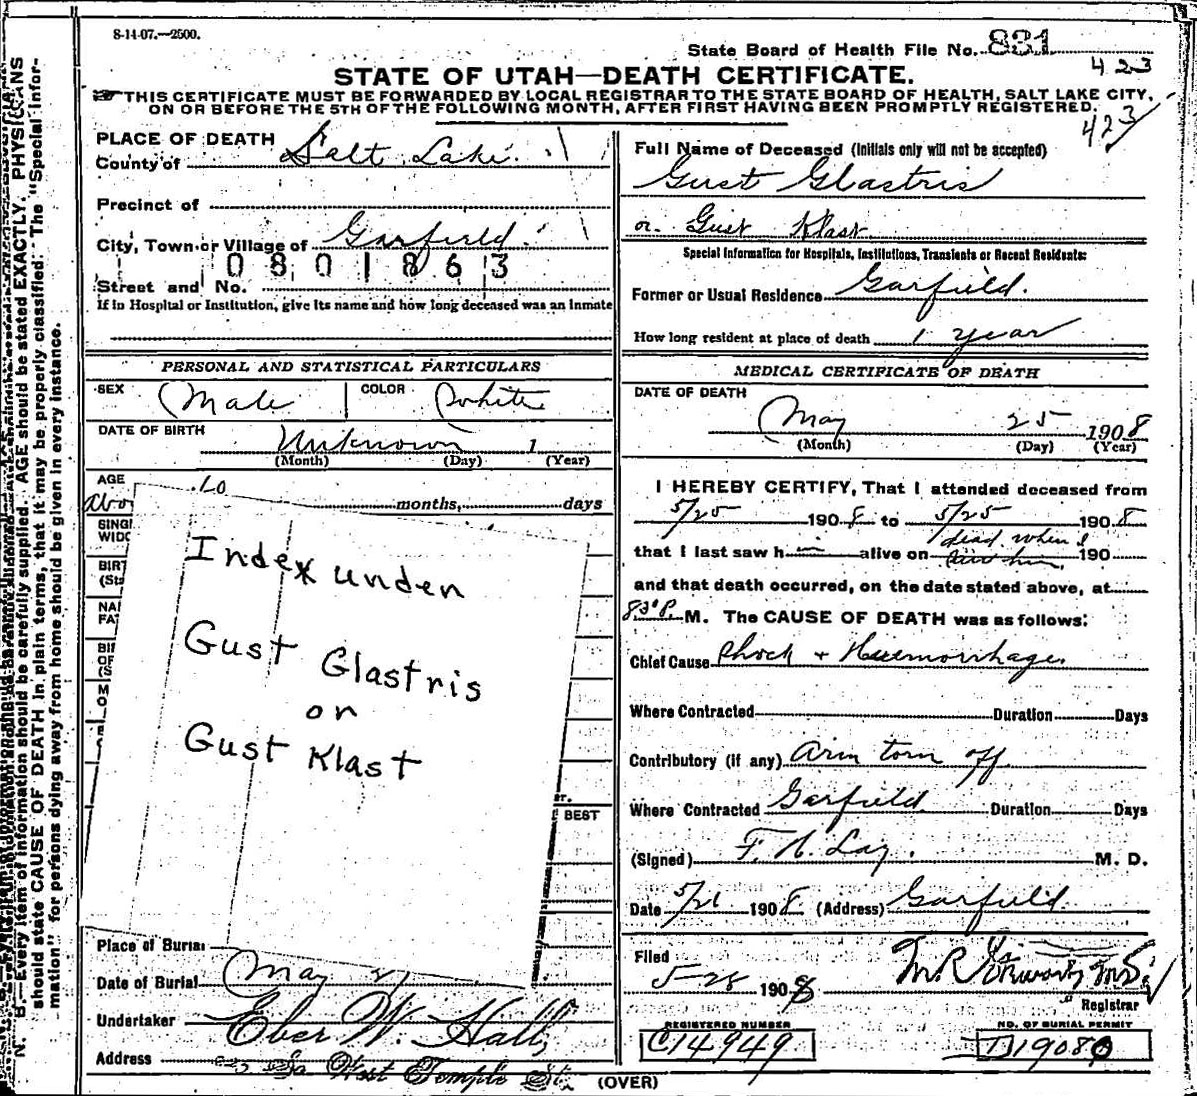 8-14-07.—2500.
State Board of Health File No. 831
423
STATE OF UTAH—DEATH CERTIFICATE.
THIS CERTIFICATE MUST BE FORWARDED BY LOCAL REGISTRAR TO THE STATE BOARD OF HEALTH, SALT LAKE CITY,
ON OR BEFORE THE 5TH OF THE FOLLOWING MONTH, AFTER FIRST HAVING BEEN PROMPTLY REGISTERED.
423
PLACE OF DEATH
County of Salt Lake
Precinct of
City, Town or Village of Garfield
0801863
Street and No.
If in Hospital or Institution, give its name and how long deceased was an inmate
PERSONAL AND STATISTICAL PARTICULARS
SEX Male COLOR White
DATE OF BIRTH Unknown 1
(Month) (Day) (Year)
AGE
months, days
SING
WIDO
BIRT
(Sta
NA
FA
BI
OF
(S
M
O
Index under
Gust Glastris
or
Gust Klast
BEST
Place of Burial
Date of Burial May
Undertaker Eber W. Hall
Address So West Temple St.
(OVER)
Full Name of Deceased (Initials only will not be accepted)
Gust Glastris
or Gust Klast
Special Information for Hospitals, Institutions, Transients or Recent Residents:
Former or Usual Residence Garfield.
How long resident at place of death 1 year
MEDICAL CERTIFICATE OF DEATH
DATE OF DEATH
May 25 1908
(Month) (Day) (Year)
I HEREBY CERTIFY, That I attended deceased from
5/25 1908 to 5/25 1908
that I last saw h im alive on dead when I saw him 190
and that death occurred, on the date stated above, at
M. The CAUSE OF DEATH was as follows:
Chief Cause Shock + Haemorrhage
Where Contracted Duration Days
Contributory (if any) Arm torn off
Where Contracted Garfield Duration Days
(Signed) F. N. Lay. M. D.
Date 1908 (Address) Garfield
Filed
5-28 1908
Registrar
REGISTERED NUMBER
C14949
NO. OF BURIAL PERMIT
D19080
N. B.—Every item of information should be carefully supplied. AGE should be stated EXACTLY. PHYSICIANS
should state CAUSE OF DEATH in plain terms, that it may be properly classified. The "Special Infor-
mation" for persons dying away from home should be given in every instance.